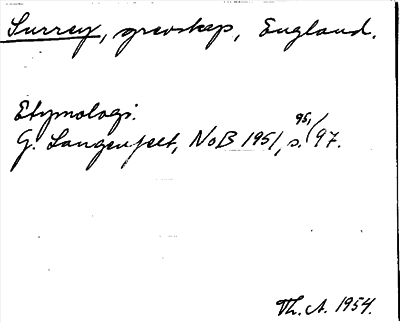 Surrey, grevskap, England.
Etymologi.
G. Langenfelt, NoB 1951, s. 95, 97.
Th. A. 1954.